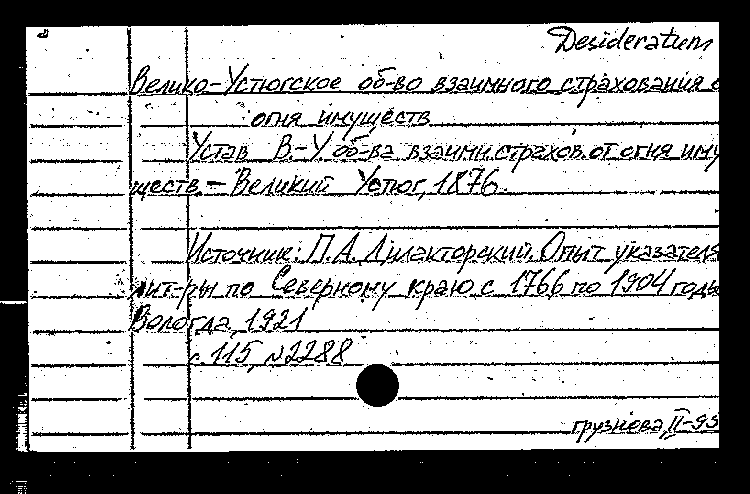 Desideratum
Велико-Устюгское об-во взаимного страхования о
огня имуществ
Устав В.-У об-ва взаимн. страхов. от огня иму
ществ. - Великий Устюг, 1876.
Источник: П. А. Дилакторский. Опыт указателя
лит-ры по Северному краю с 1766 по 1904 годы
Вологда, 1921
с. 115, №2288
грузнева, II-95